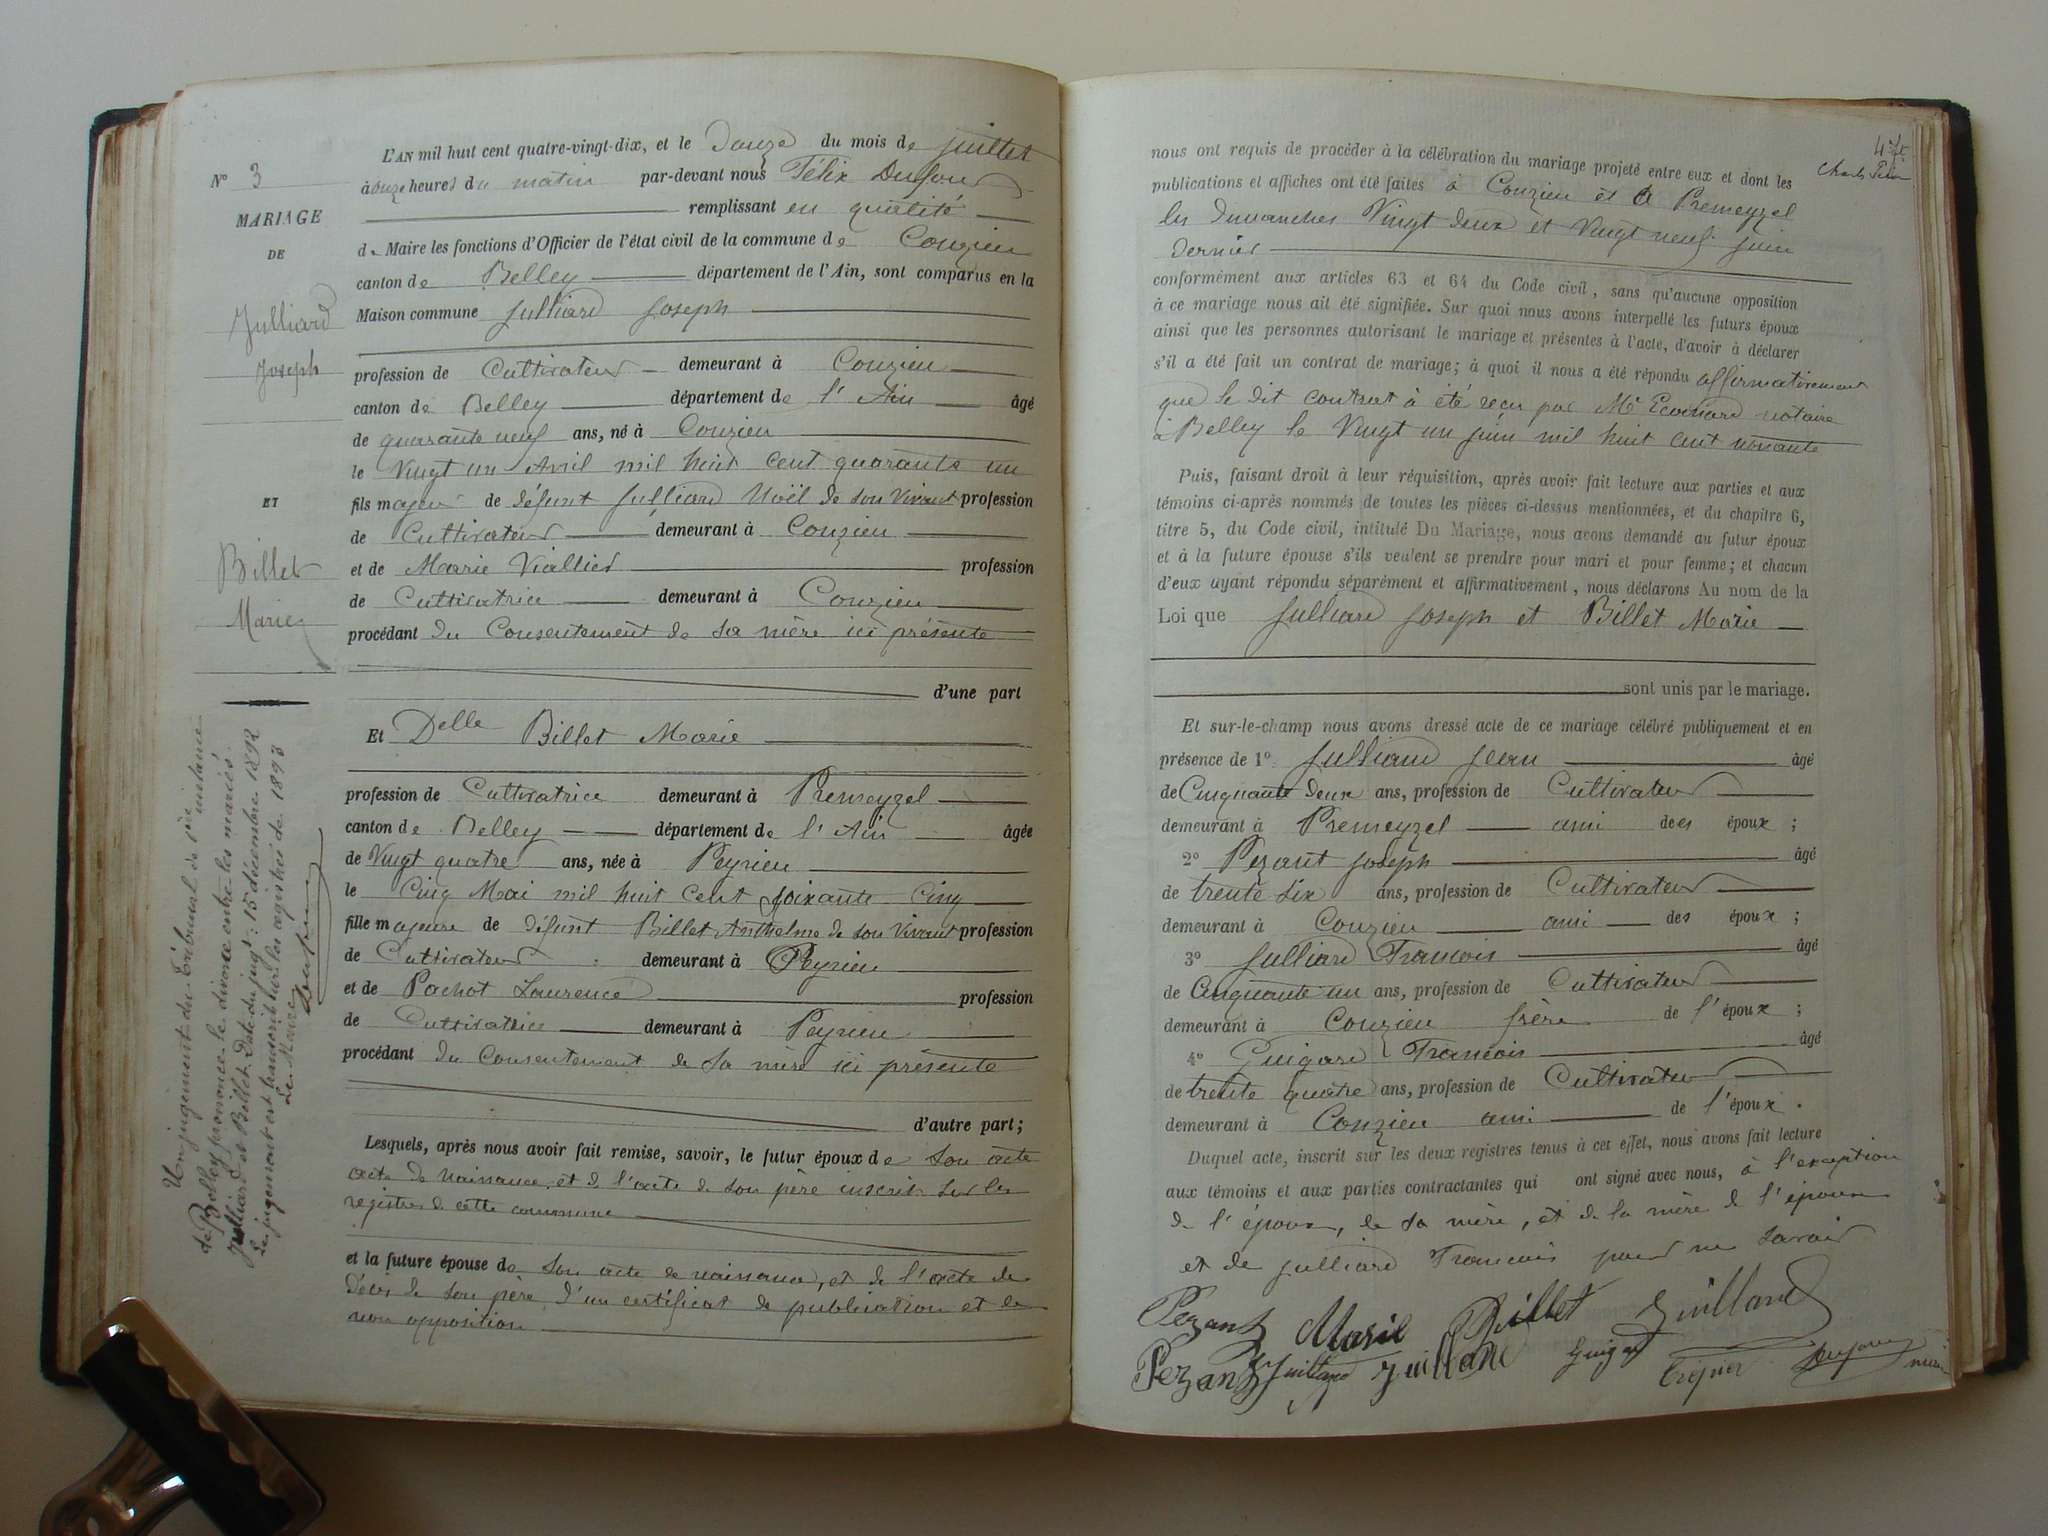 N° 3
MARIAGE
DE
Julliard
Joseph
ET
Billet
Marie
Un jugement du Tribunal de 1ère instance
de Belley prononce le divorce entre les mariés
Julliard et Billet. Date du jugt : 15 décembre 1892
Le jugement est transcrit sur les registres de 1893
Le Maire
Dufour
L'AN mil huit cent quatre-vingt-dix, et le Douze du mois de juillet
à onze heures du matin par-devant nous Félix Dufour
remplissant en qualité
de Maire les fonctions d'Officier de l'état civil de la commune de Conzieu
canton de Belley département de l'Ain, sont comparus en la
Maison commune Julliard Joseph
profession de Cultivateur demeurant à Conzieu
canton de Belley département de l'Ain âgé
de quarante neuf ans, né à Conzieu
le Vingt un Avril mil huit cent quarante un
fils majeur de défunt Julliard Noël de son Vivant profession
de Cultivateur demeurant à Conzieu
et de Marie Viallier profession
de Cultivatrice demeurant à Conzieu
procédant du Consentement de sa mère ici présente
d'une part
Et Delle Billet Marie
profession de Cultivatrice demeurant à Premeyzel
canton de Belley département de l'Ain âgée
de Vingt quatre ans, née à Peyrieu
le Cinq Mai mil huit cent soixante Cinq
fille majeure de défunt Billet Anthelme de son Vivant profession
de Cultivateur demeurant à Peyrieu
et de Pochot Laurence profession
de Cultivatrice demeurant à Peyrieu
procédant du Consentement de sa mère ici présente
d'autre part;
Lesquels, après nous avoir fait remise, savoir, le futur époux de son acte
acte de naissance, et de l'acte de son père inscrits sur les
registres de cette commune
et la future épouse de son acte de naissance, et de l'acte de
décès de son père, d'un certificat de publication et de
non opposition
nous ont requis de procéder à la célébration du mariage projeté entre eux et dont les
publications et affiches ont été faites à Conzieu et à Premeyzel
les dimanches Vingt deux et Vingt neuf juin
dernier
conformément aux articles 63 et 64 du Code civil, sans qu'aucune opposition
à ce mariage nous ait été signifiée. Sur quoi nous avons interpellé les futurs époux
ainsi que les personnes autorisant le mariage et présentes à l'acte, d'avoir à déclarer
s'il a été fait un contrat de mariage; à quoi il nous a été répondu affirmativement
que le dit contrat à été reçu par Me notaire
à Belley le Vingt un juin mil huit cent nonante
Puis, faisant droit à leur réquisition, après avoir fait lecture aux parties et aux
témoins ci-après nommés de toutes les pièces ci-dessus mentionnées, et du chapitre 6,
titre 5, du Code civil, intitulé Du Mariage, nous avons demandé au futur époux
et à la future épouse s'ils veulent se prendre pour mari et pour femme; et chacun
d'eux ayant répondu séparément et affirmativement, nous déclarons Au nom de la
Loi que Julliard Joseph et Billet Marie
sont unis par le mariage.
Et sur-le-champ nous avons dressé acte de ce mariage célébré publiquement et en
présence de 1° Julliand Jean âgé
de Cinquante deux ans, profession de Cultivateur
demeurant à Premeyzel ami des époux;
2° Pezant Joseph âgé
de trente six ans, profession de Cultivateur
demeurant à Conzieu ami des époux;
3° Julliard Francois âgé
de Cinquante un ans, profession de Cultivateur
demeurant à Conzieu frère de l'époux;
4° Guigard Francois âgé
de trente quatre ans, profession de Cultivateur
demeurant à Conzieu ami de l'époux.
Duquel acte, inscrit sur les deux registres tenus à cet effet, nous avons fait lecture
aux témoins et aux parties contractantes qui ont signé avec nous, à l'exception
de l'époux, de sa mère, et de la mère de l'épouse
et de Julliard Francois pour ne savoir
Pezant Marie Billet Juilland
Pezant Juilland Juilland Guigard Dufour maire